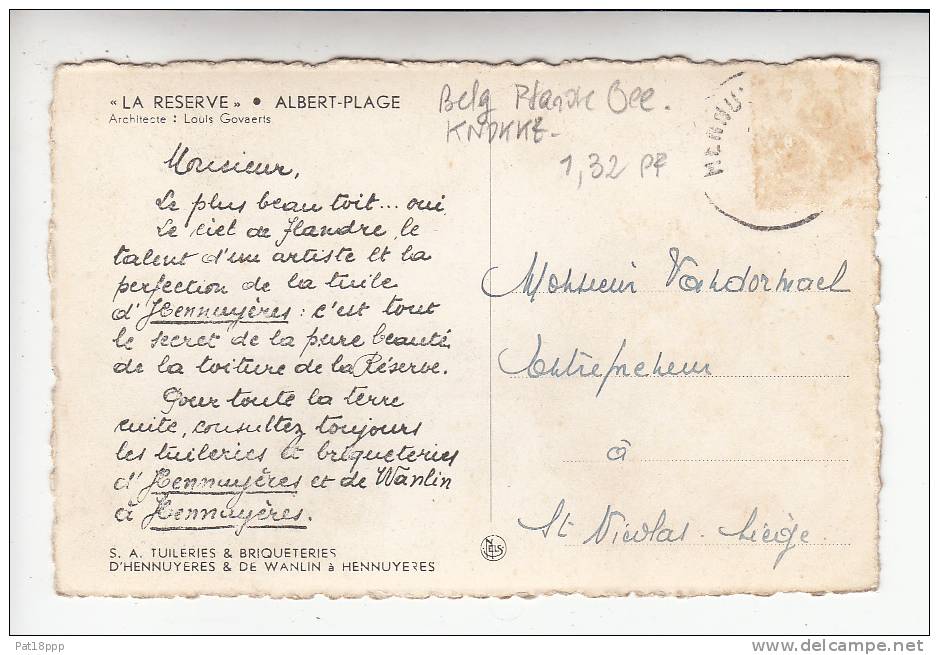 « LA RESERVE » • ALBERT-PLAGE
Architecte : Louis Govaerts
Belg
KNOKKE
1,32
Monsieur,
Le plus beau toit... oui
Le ciel de Flandre, le
talent d'un artiste et la
perfection de la tuile
d'Hennuyères : c'est tout
le secret de la pure beauté
de la toiture de la Réserve.
Pour toute la terre
cuite, consultez toujours
les tuileries et briqueteries
d'Hennuyères et de Wanlin
à Hennuyères.
S. A. TUILERIES & BRIQUETERIES
D'HENNUYERES & DE WANLIN à HENNUYERES
NELS
HENNU
Monsieur Vandormael
Entrepreneur
à
St Nicolas. Liège.
Pat18ppp
www.delcampe.net